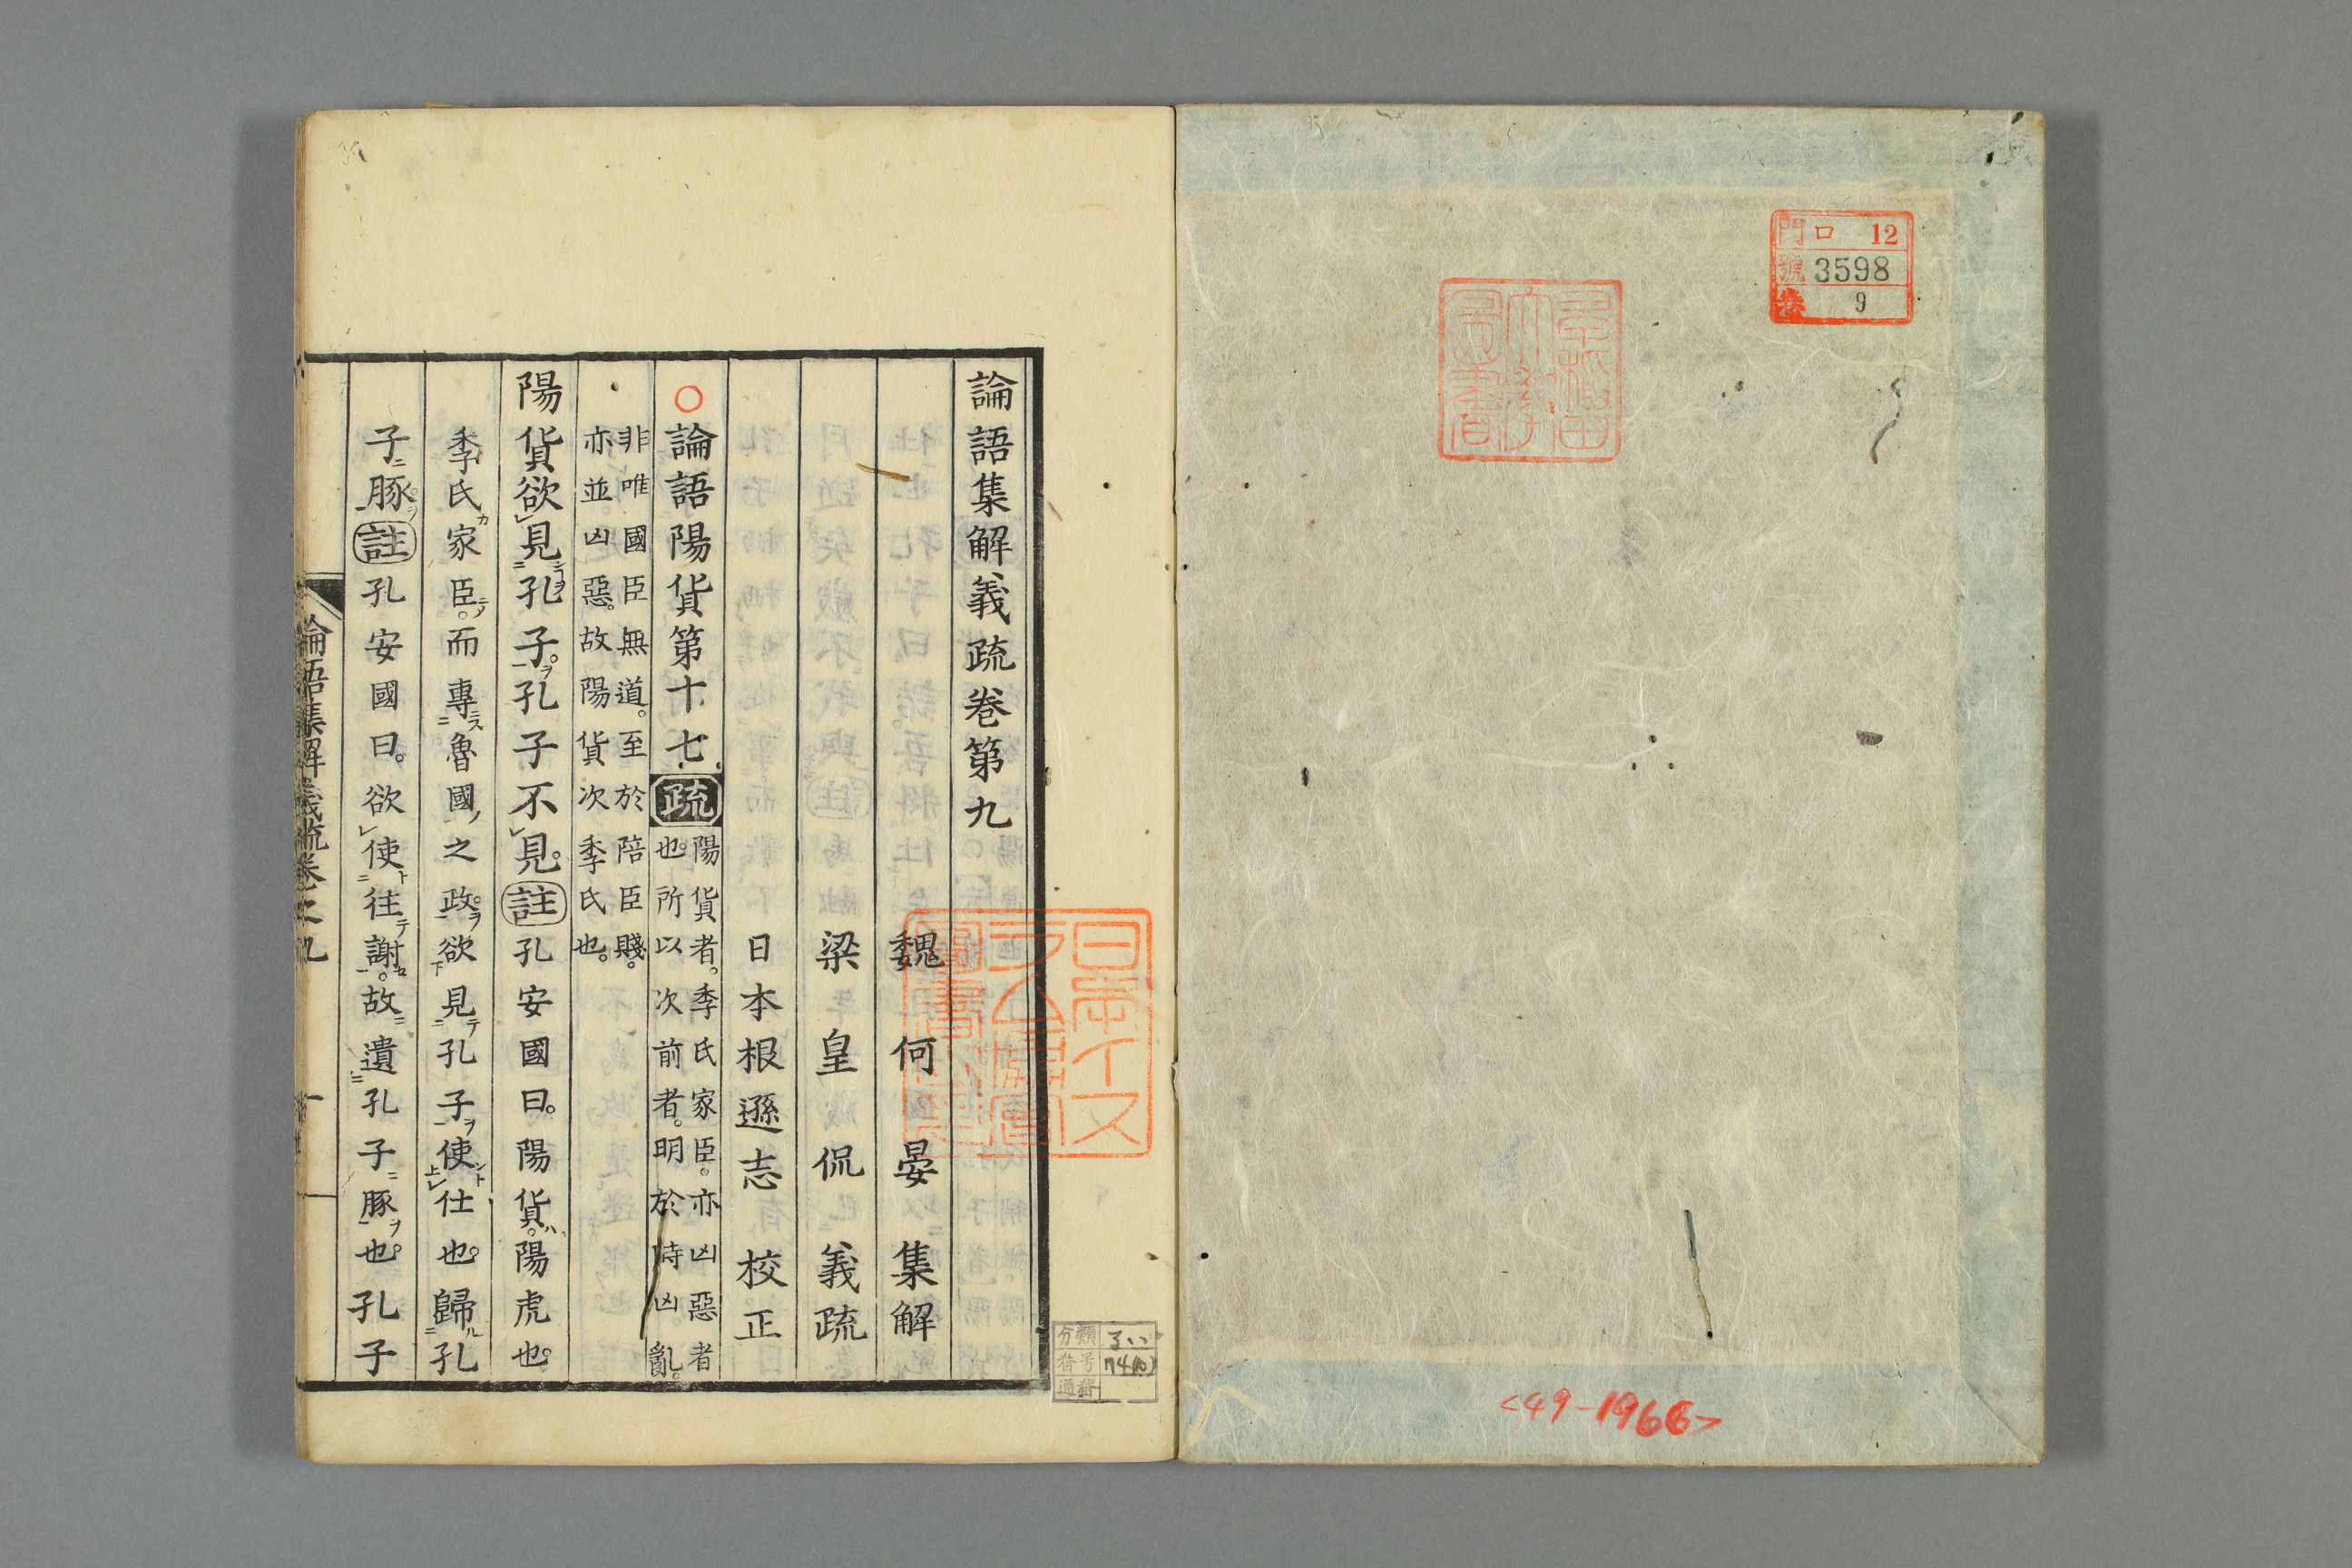 門 口 12
號 3598
巻 9
早稲田
大學
圖書
<49-1966>
論語集解義疏卷第九
魏何晏集解
梁皇侃義疏
日本根遜志校正
○論語陽貨第十七疏陽貨者。季氏家臣。亦凶惡者
也。所以次前者。明於時凶亂。
非唯國臣無道。至於陪臣賤。
亦並凶惡。故陽貨次季氏也。
陽貨欲㆑見㆓孔子㆒。孔子不㆑見。註孔安國曰。陽貨。陽虎也。
季氏家臣。而專㆓魯國之政㆒。欲㆘見㆓孔子㆒使㆖㆑仕也。歸㆓孔
子豚。註孔安國曰。欲㆑使㆓往謝㆒。故遺㆓孔子豚㆒也。孔子
論語集解義疏卷之九 一
分類
番号
通番